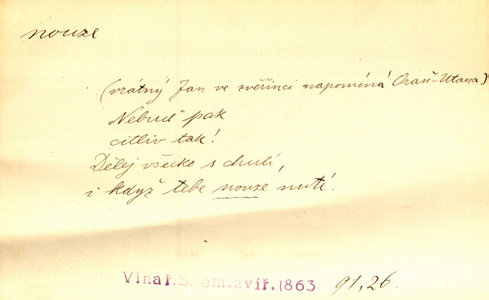 nouze
(vrátný Jan ve zvěřinci napomíná Oran-Utana)
Nebuď pak
citliv tak!
Dělej všecko s chutí,
i když tebe nouze nutí.
Vinař. Sněm. zvíř. 1863 91, 26.